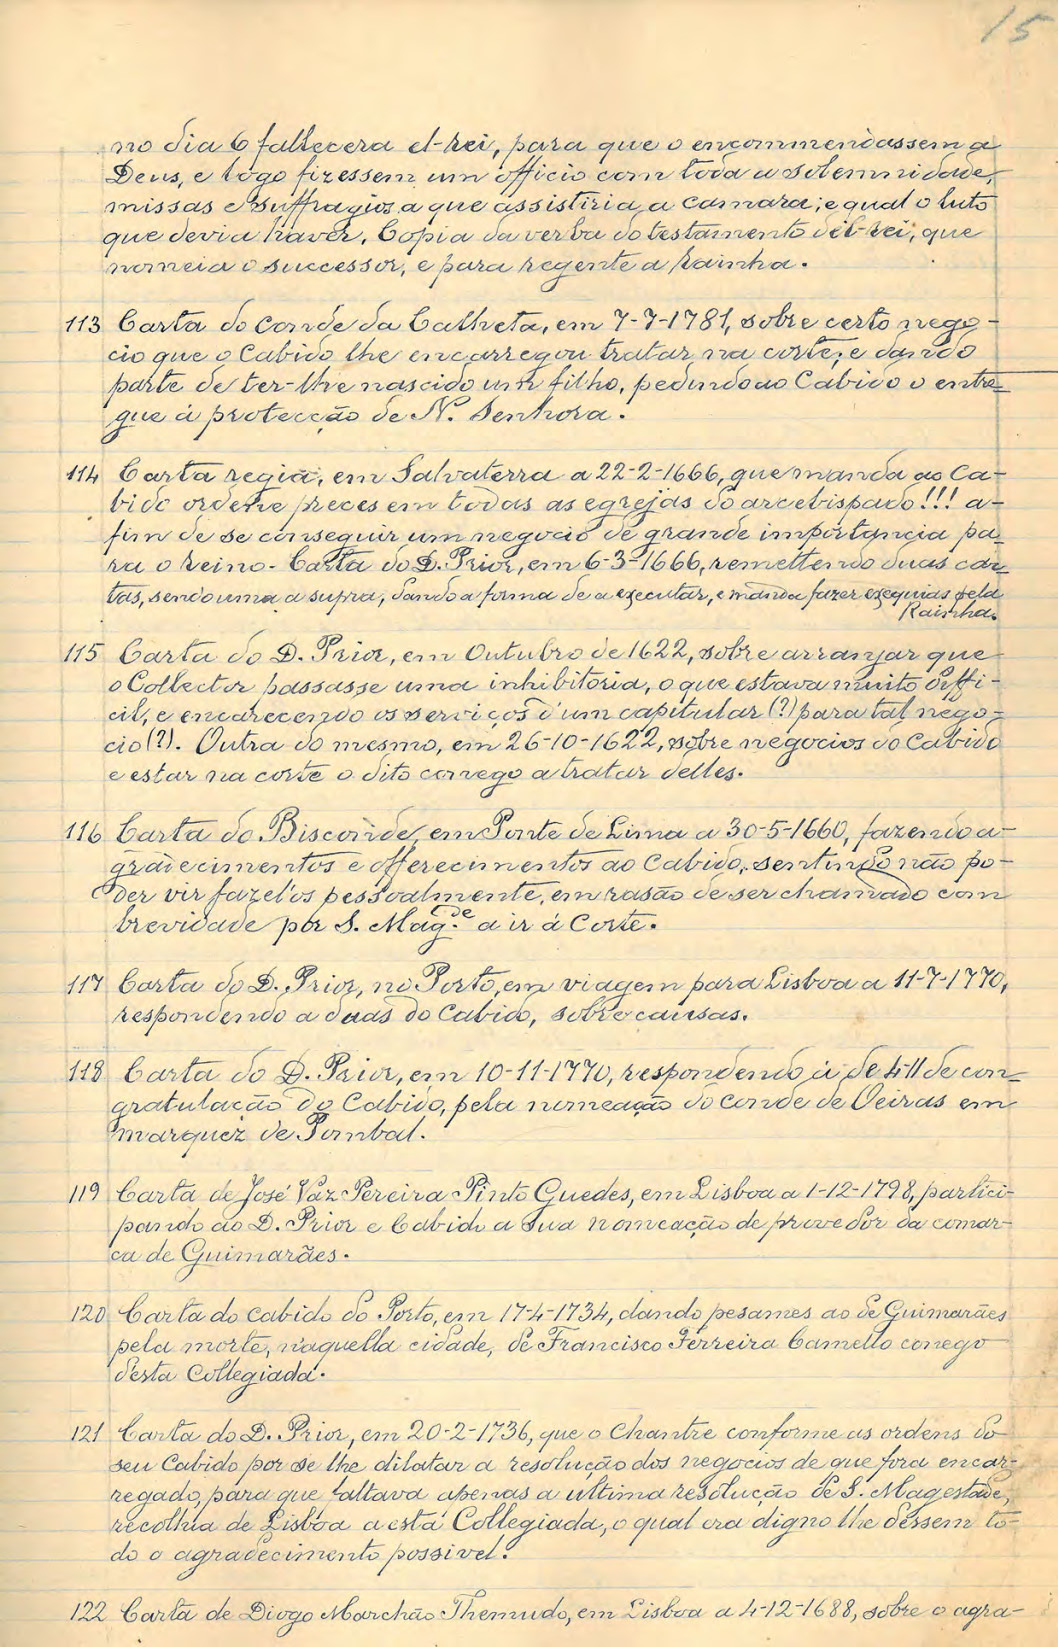 15
no dia 6 fallecera el-rei, para que o encommendassem a
Deus, e logo fizessem um officio com toda a solemnidade,
missas e suffragios a que assistiria a camara; e qual o luto
que devia haver. Copia da verba do testamento d'el-rei, que
nomeia o successor, e para regente a Rainha.
113 Carta do conde da Calheta, em 7-7-1781, sobre certo nego-
cio que o Cabido lhe encarregou tratar na corte, e dando
parte de ter-lhe nascido um filho, pedindo ao Cabido o entre-
gue á protecção de N. Senhora.
114 Carta regia, em Salvaterra a 22-2-1666, que manda ao Ca-
bido ordene preces em todas as egrejas do arcebispado!!! a-
fim de se conseguir um negocio de grande importancia pa-
ra o reino. Carta do D. Prior, em 6-3-1666, remettendo duas car-
tas, sendo uma a supra, dando a forma de a executar, e manda fazer exequias pela
Rainha.
115 Carta do D. Prior, em Outubro de 1622, sobre arranjar que
o Collector passasse uma inhibitoria, o que estava muito diffi-
cil, e encarecendo os serviços d'um capitular (?) para tal nego-
cio (?). Outra do mesmo, em 26-10-1622, sobre negocios do Cabido
e estar na corte o dito conego a tratar delles.
116 Carta do Bisconde, em Ponte de Lima a 30-5-1660, fazendo a-
gradecimentos e offerecimentos ao Cabido, sentindo não po-
der vir fazel'os pessoalmente, em rasão de ser chamado com
brevidade por S. Mag.de a ir á Corte.
117 Carta do D. Prior, no Porto, em viagem para Lisboa a 11-7-1770,
respondendo a duas do Cabido, sobre causas.
118 Carta do D. Prior, em 10-11-1770, respondendo á de 4-11 de con-
gratulação do Cabido, pela nomeação do conde de Oeiras em
marquez de Pombal.
119 Carta de José Vaz Pereira Pinto Guedes, em Lisboa a 1-12-1798, partici-
pando ao D. Prior e Cabido a sua nomeação de provedor da comar-
ca de Guimarães.
120 Carta do cabido do Porto, em 17-4-1734, dando pesames ao de Guimarães
pela morte, n'aquella cidade, de Francisco Ferreira Camello conego
desta Collegiada.
121 Carta do D. Prior, em 20-2-1736, que o Chantre conforme as ordens do
seu Cabido por se lhe dilatar a resolução dos negocios de que fora encar-
regado, para que faltava apenas a ultima resolução de S. Magestade,
recolhia de Lisboa a esta Collegiada, o qual era digno lhe dessem to-
do o agradecimento possivel.
122 Carta de Diogo Marchão Themudo, em Lisboa a 4-12-1688, sobre o agra-